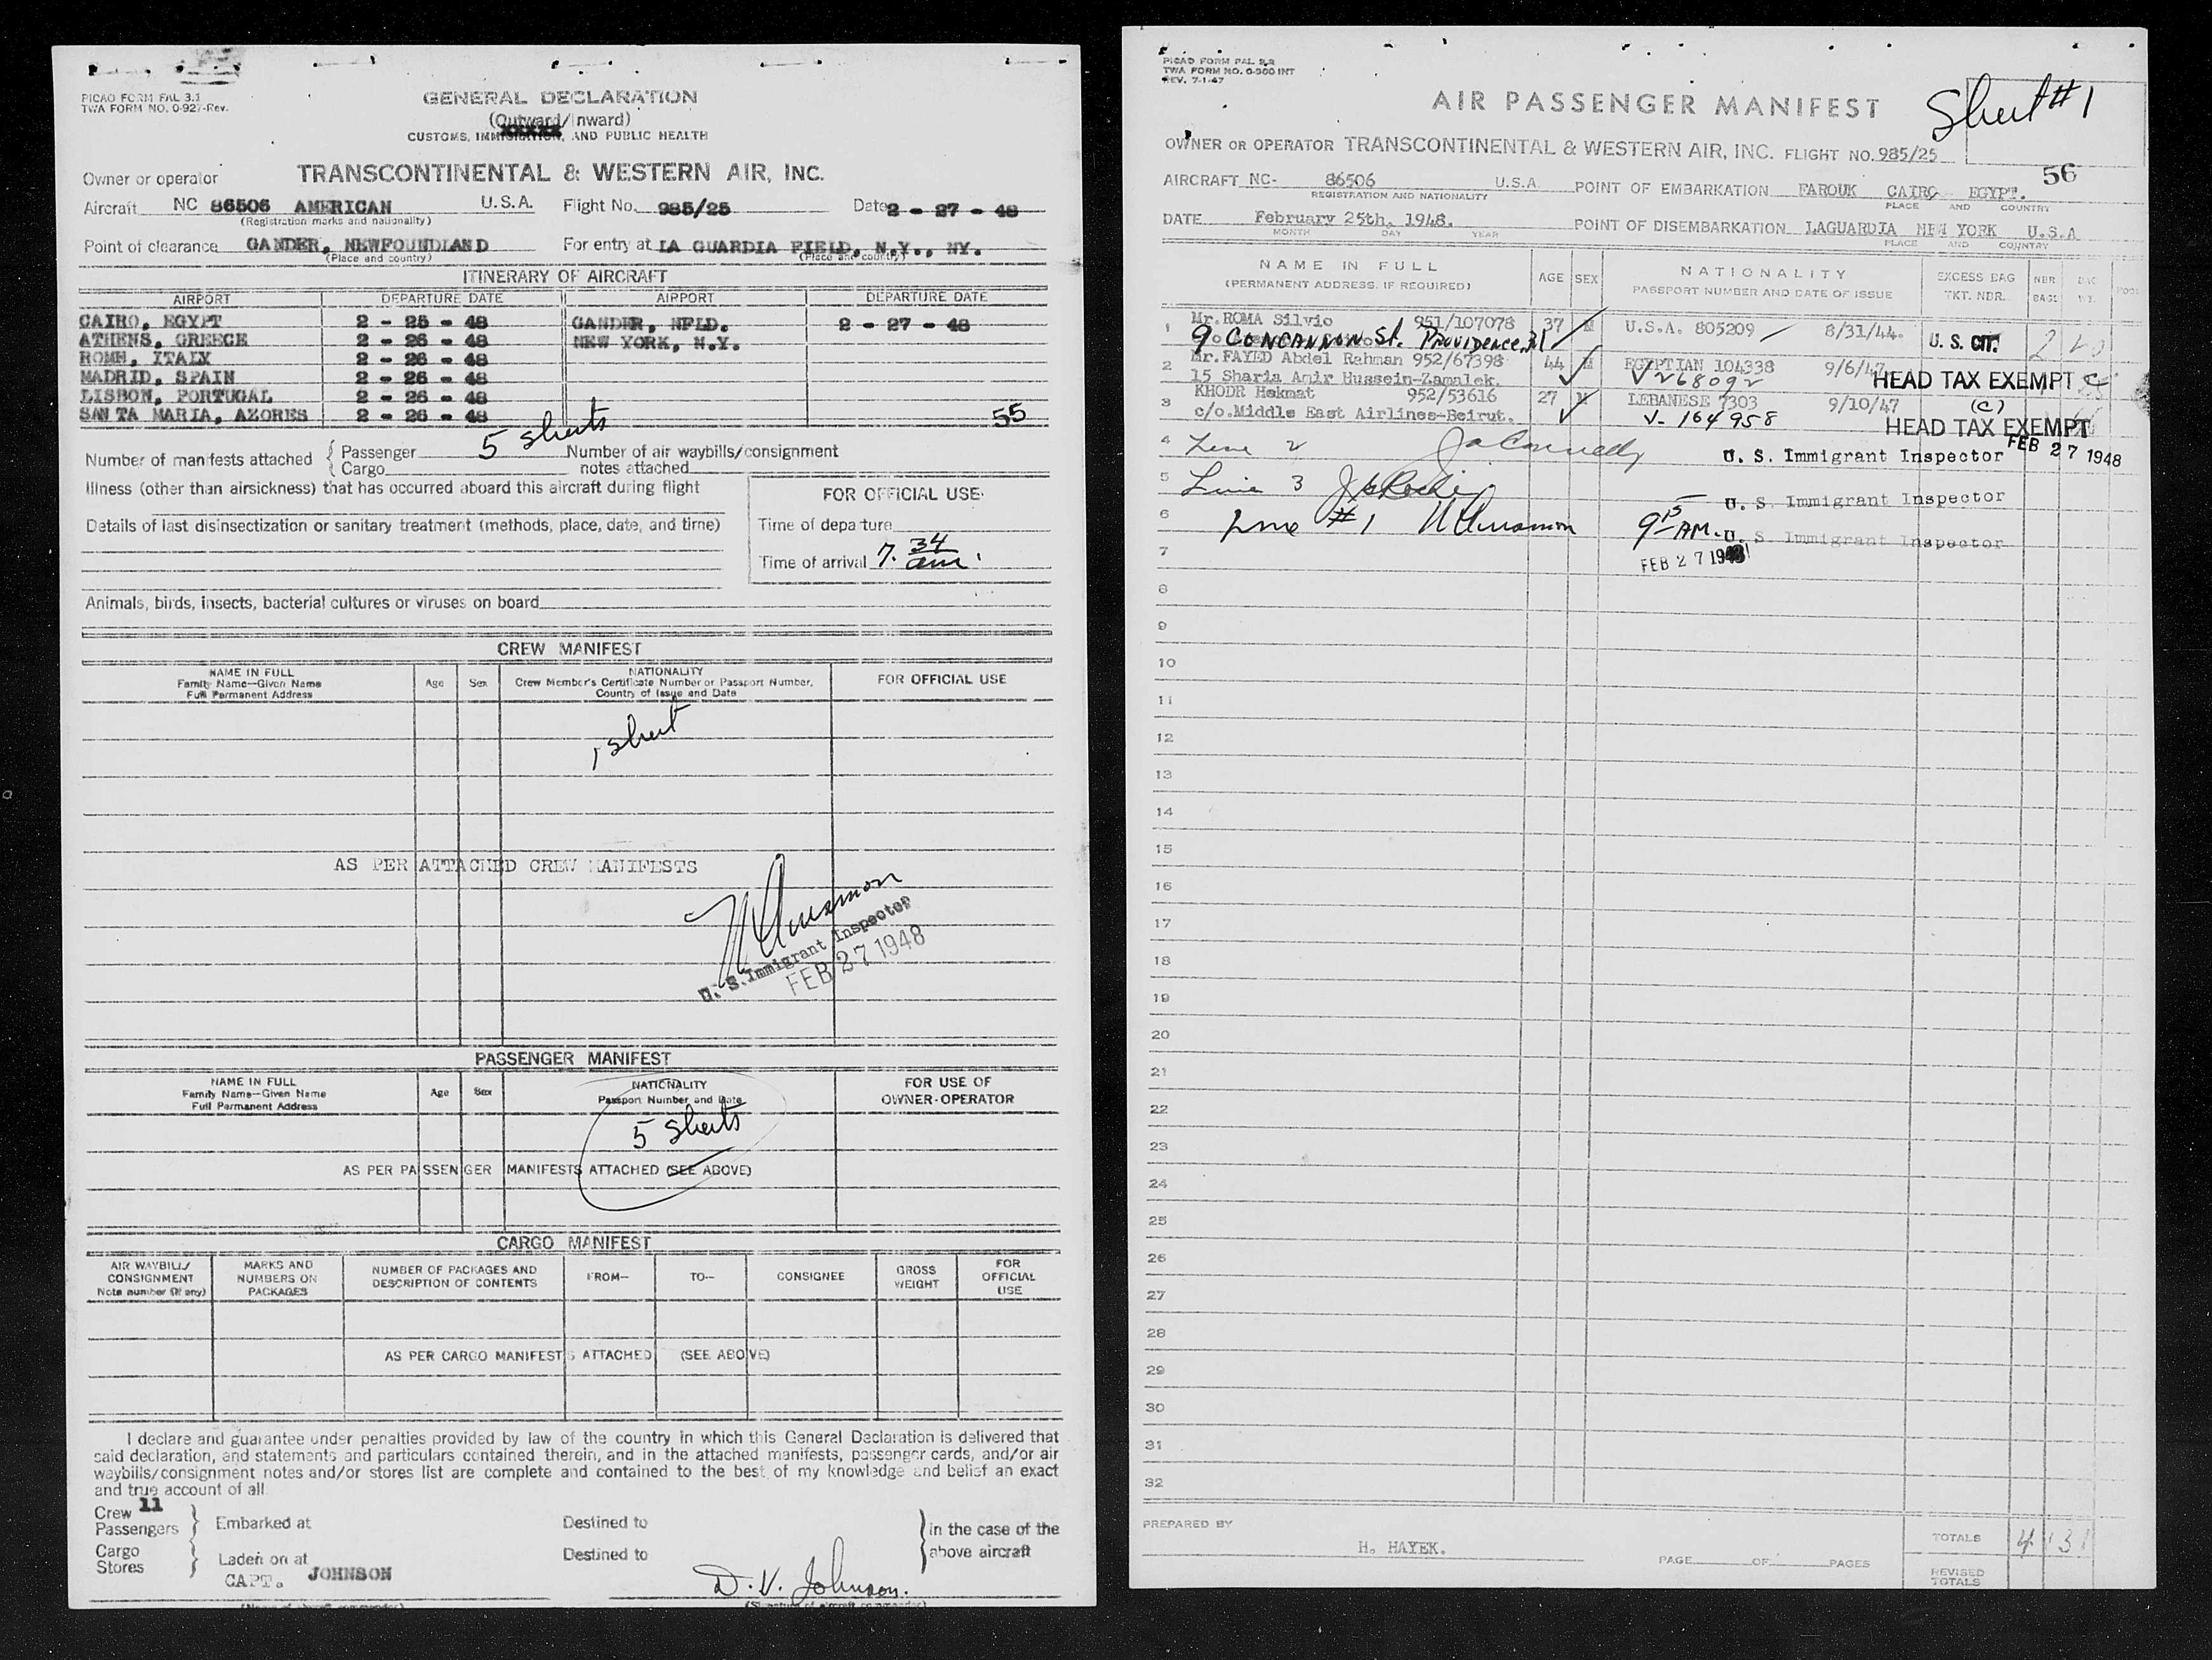 PICAO FORM FAL 3.1
TWA FORM NO. 0-927-Rev.
GENERAL DECLARATION
(Outward/Inward)
CUSTOMS, IMMIGRATION, AND PUBLIC HEALTH
Owner or operator TRANSCONTINENTAL & WESTERN AIR, INC.
Aircraft NC 86506 AMERICAN U.S.A. Flight No. 985/25 Date 2 - 27 - 48
(Registration marks and nationality)
Point of clearance GANDER, NEWFOUNDLAND For entry at LA GUARDIA FIELD, N.Y., NY.
(Place and country) (Place and country)
ITINERARY OF AIRCRAFT
AIRPORT DEPARTURE DATE AIRPORT DEPARTURE DATE
CAIRO, EGYPT 2 - 25 - 48 GANDER, NFLD. 2 - 27 - 48
ATHENS, GREECE 2 - 26 - 48 NEW YORK, N.Y.
ROME, ITALY 2 - 26 - 48
MADRID, SPAIN 2 - 26 - 48
LISBON, PORTUGAL 2 - 26 - 48
SANTA MARIA, AZORES 2 - 26 - 48 55
Number of manifests attached { Passenger 5 sheets Number of air waybills/consignment
Cargo notes attached
Illness (other than airsickness) that has occurred aboard this aircraft during flight
FOR OFFICIAL USE
Details of last disinsectization or sanitary treatment (methods, place, date, and time)
Time of departure
Time of arrival 7.34 am.
Animals, birds, insects, bacterial cultures or viruses on board
CREW MANIFEST
NAME IN FULL
Family Name—Given Name
Full Permanent Address
Age Sex
NATIONALITY
Crew Member's Certificate Number or Passport Number,
Country of Issue and Date
FOR OFFICIAL USE
1 sheet
AS PER ATTACHED CREW MANIFESTS
U. S. Immigrant Inspector
FEB 27 1948
PASSENGER MANIFEST
NAME IN FULL
Family Name—Given Name
Full Permanent Address
Age Sex
NATIONALITY
Passport Number and Date
FOR USE OF
OWNER-OPERATOR
5 Sheets
AS PER PASSENGER MANIFESTS ATTACHED (SEE ABOVE)
CARGO MANIFEST
AIR WAYBILL/
CONSIGNMENT
Note number (if any)
MARKS AND
NUMBERS ON
PACKAGES
NUMBER OF PACKAGES AND
DESCRIPTION OF CONTENTS
FROM—
TO—
CONSIGNEE
GROSS
WEIGHT
FOR
OFFICIAL
USE
AS PER CARGO MANIFESTS ATTACHED (SEE ABOVE)
I declare and guarantee under penalties provided by law of the country in which this General Declaration is delivered that
said declaration, and statements and particulars contained therein, and in the attached manifests, passenger cards, and/or air
waybills/consignment notes and/or stores list are complete and contained to the best of my knowledge and belief an exact
and true account of all
Crew 11
Passengers } Embarked at Destined to
Cargo
Stores } Laden on at Destined to
} in the case of the
above aircraft
CAPT. JOHNSON
D. V. Johnson.
PICAO FORM FAL 3.2
TWA FORM NO. 0-900 INT
REV. 7-1-47
AIR PASSENGER MANIFEST
Sheet #1
OWNER OR OPERATOR TRANSCONTINENTAL & WESTERN AIR, INC. FLIGHT NO. 985/25
56
AIRCRAFT NC- 86506 U.S.A. POINT OF EMBARKATION FAROUK CAIRO EGYPT.
REGISTRATION AND NATIONALITY PLACE AND COUNTRY
DATE February 25th, 1948. POINT OF DISEMBARKATION LAGUARDIA NEW YORK U.S.A
MONTH DAY YEAR PLACE AND COUNTRY
NAME IN FULL
(PERMANENT ADDRESS, IF REQUIRED)
AGE SEX
NATIONALITY
PASSPORT NUMBER AND DATE OF ISSUE
EXCESS BAG
TKT. NBR.
NBR
BAGS
BAG
WT.
1 Mr. ROMA Silvio 951/107078 37 M U.S.A. 805209 8/31/44. U. S. CIT. 2
9 CONCANNON St. PROVIDENCE RI
2 Mr. FAYED Abdel Rahman 952/67398 44 M EGYPTIAN 104338 9/6/47
15 Sharia Amir Hussein-Zamalek. V 268092 HEAD TAX EXEMPT
3 KHODR Hekmat 952/53616 27 M LEBANESE 7303 9/10/47 (C)
c/o. Middle East Airlines-Beirut. V- 164958 HEAD TAX EXEMPT
FEB 27 1948
4 Line 2 J A Connelly U. S. Immigrant Inspector
5 Line 3 U. S. Immigrant Inspector
6 Line #1 9 15 AM. U. S. Immigrant Inspector
7 FEB 27 1948
8
9
10
11
12
13
14
15
16
17
18
19
20
21
22
23
24
25
26
27
28
29
30
31
32
PREPARED BY
H. HAYEK.
PAGE OF PAGES
TOTALS 4 131
REVISED
TOTALS